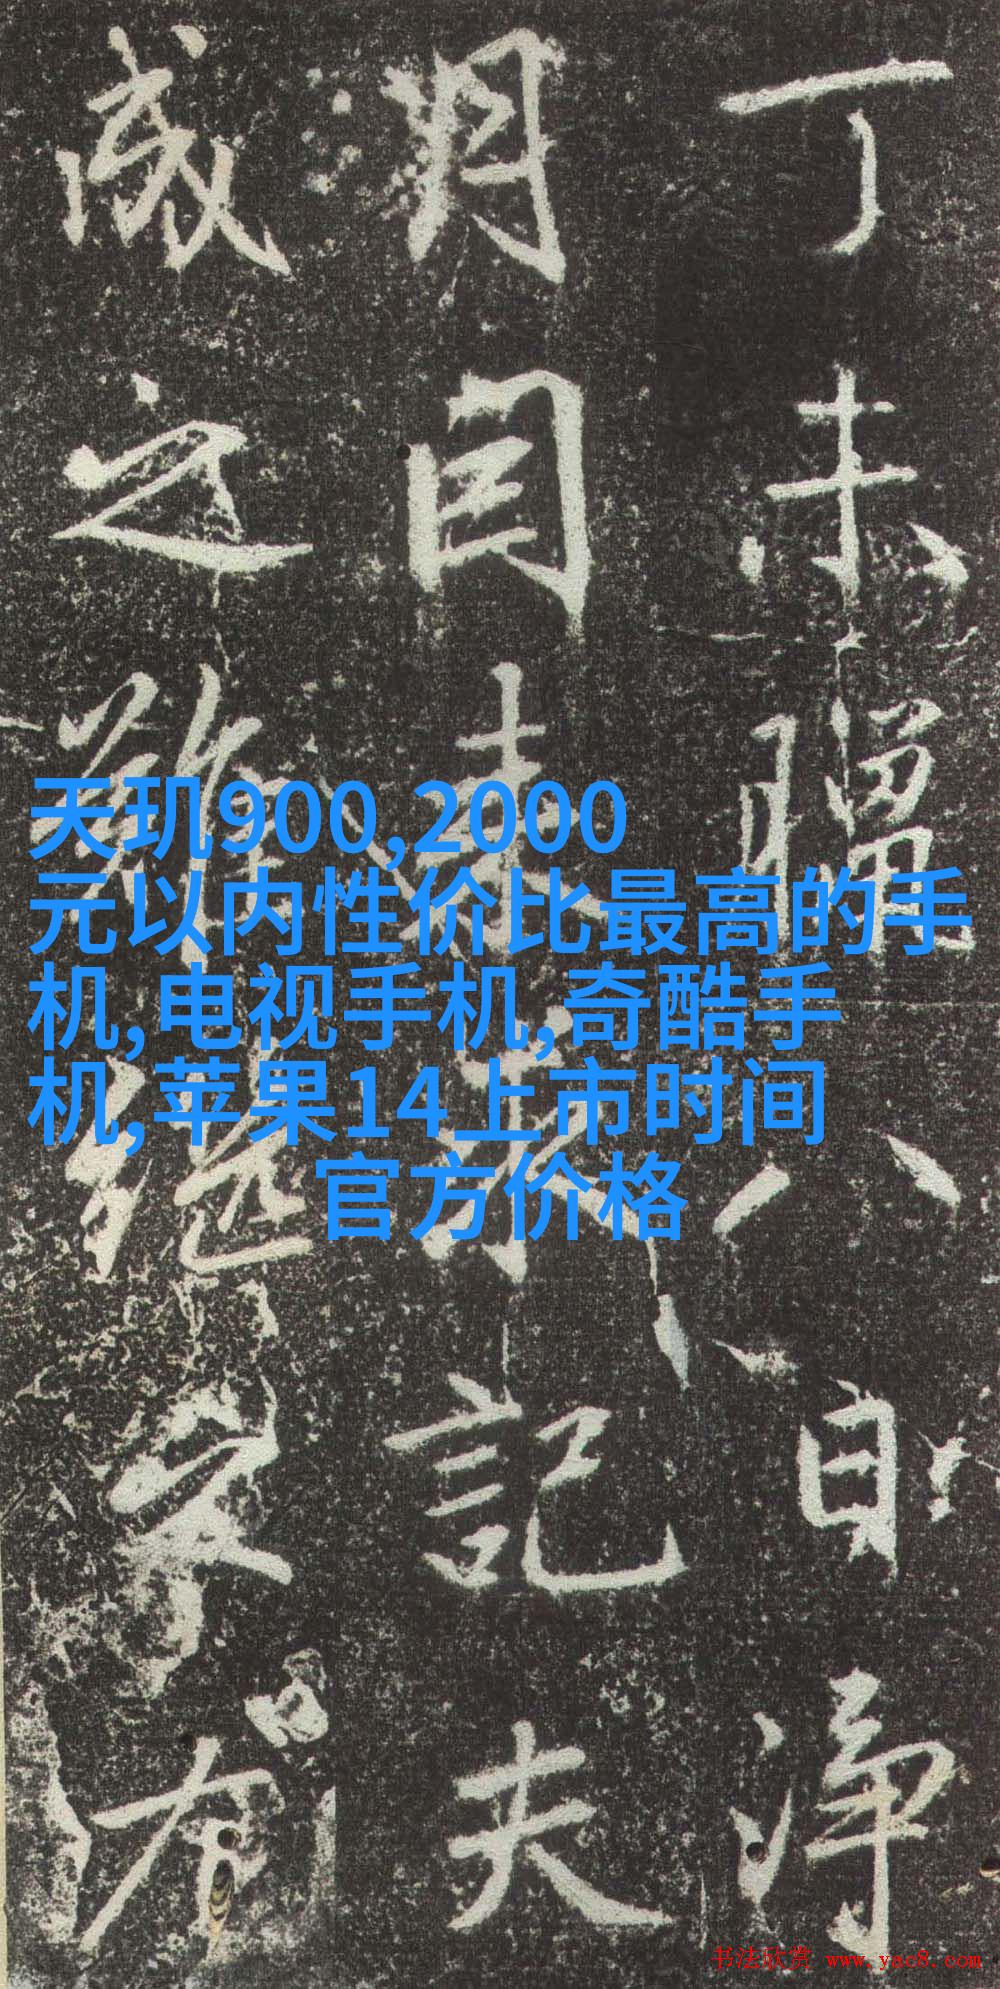 天玑900,2000
元以内性价比最高的手
机,电视手机,奇酷手
机,苹果14上市时间
官方价格
丁未臘八日淨
月因記夫
成之難繼
书法欣赏 www.yac8.com